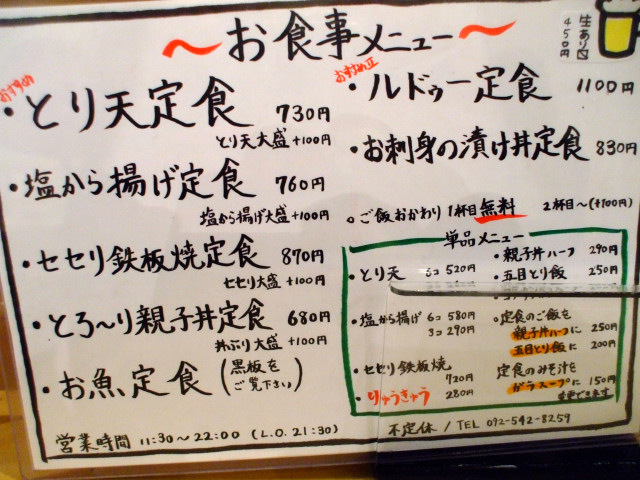 〜お食事メニュー〜
生あり〼
450円
おすすめ
・とり天定食 730円
とり天大盛 +100円
・塩から揚げ定食 760円
塩から揚げ大盛 +100円
・セセリ鉄板焼定食 870円
セセリ大盛 +100円
・とろ〜り親子丼定食 680円
丼ぶり大盛 +100円
・お魚定食(黒板をご覧下さい)
おすすめII
・ルドゥー定食 1100円
・お刺身の漬け丼定食 830円
○ご飯おかわり 1杯目無料 2杯目〜(+100円)
単品メニュー
・とり天 6コ 520円
・塩から揚げ 6コ 580円
3コ 290円
・セセリ鉄板焼
720円
・りゅうきゅう 280円
・親子丼ハーフ 290円
・五目とり飯 250円
○定食のご飯を
親子丼ハーフに 250円
五目とり飯に 200円
定食のみそ汁を
ガラスープに 150円
変更できます
営業時間 11:30〜22:00 (L.O. 21:30)
不定休 / TEL 092-542-8259